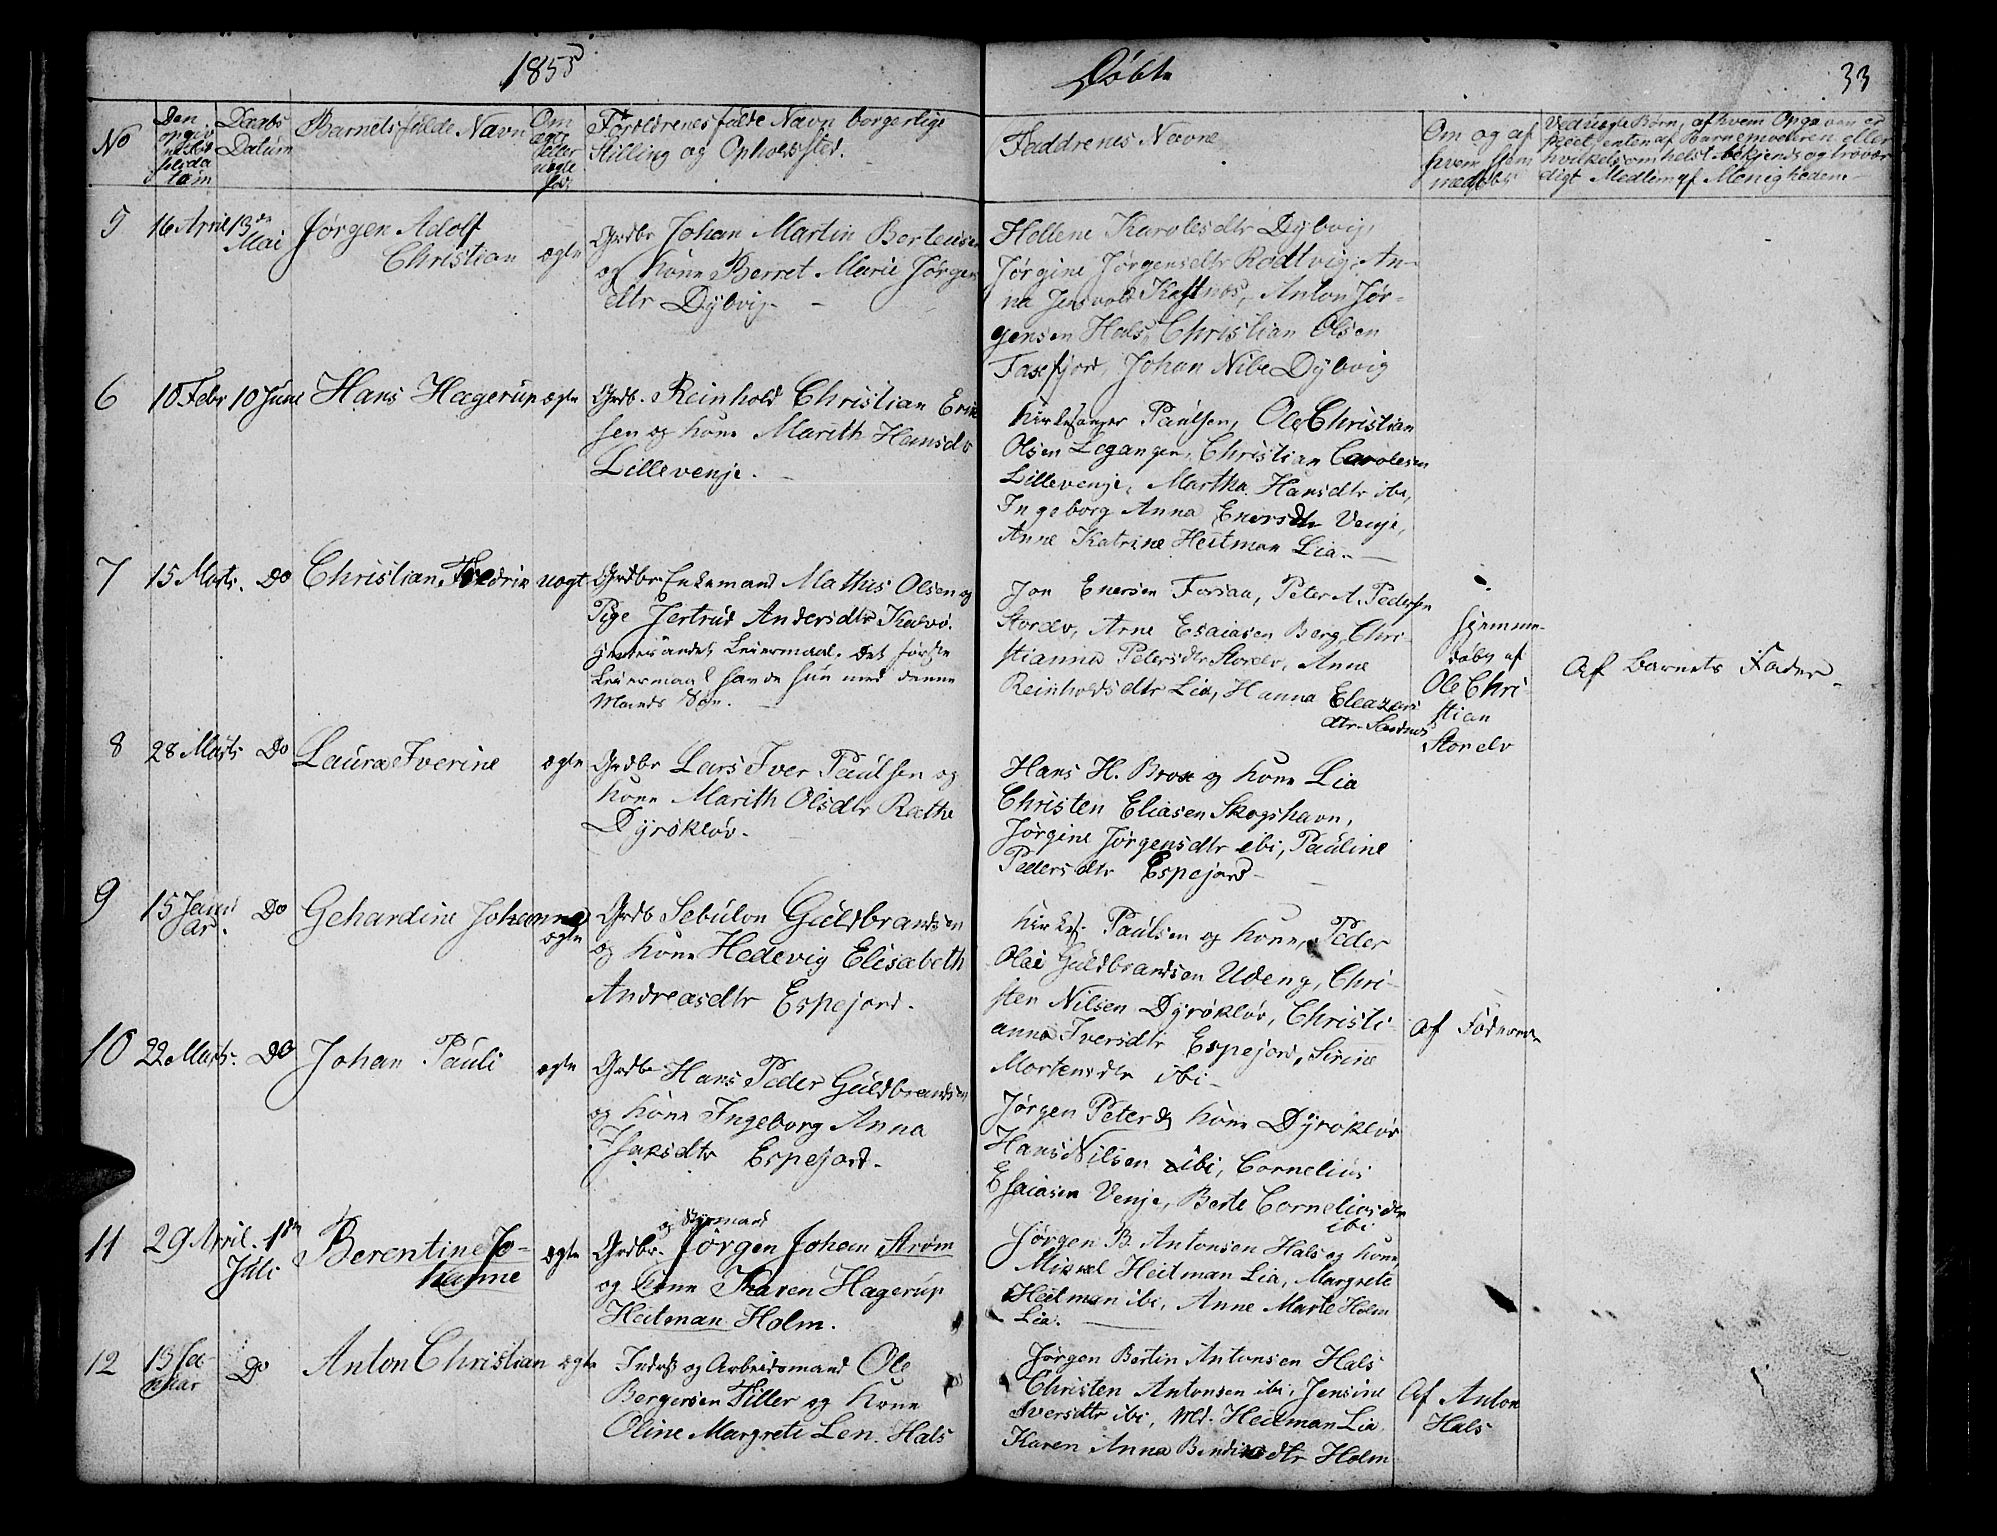 1855
Døbte
33
No
Daabs
Datum
Barnets fulde Navn
Om
ægte
eller
uægte
fød.
Forældrenes fulde Navn borgerlige
Stilling og Opholdssted.
Faddrenes Navne
Om og af
hvem hjem
medøbt
digt Medlem af Menigheden
5 16 April 13de Mai Jørgen Adolf
Christian ægte
Grdbr Johan Martin Berteusen
og Kone Berret Marie Jørgens
dtr Dybvig
Hellene Karolesdtr Dybvig,
Jørgine Jørgensdtr Rødtvig, An-
na Jensvold Kastnæs, Anton Jør-
gensen Hals, Christian Olsen
Faxefjord, Johan Nibe Dybvig
6 10 Febr 10 June Hans Hagerup ægte
Grdb. Reinhold Christian Erik
sen og Kone Marith Hansdtr
Lillevenje.
Kirkesanger Paulsen, Ole Christian
Olsen Legangen, Christian Carolesen
Lillevenje, Martha Hansdtr ibi,
Ingeborg Anna Enersdtr Venje,
Anne Katrine Heitman Lia.
7 15 Marts. Do Christian Fredrik uægt
Grdbr Enkemand Mathis Olsen og
Pige Jertrud Andersdtr Kalvø.
Leiermaal. Det første
Leiermaal havde hun med denne
Mands Søn.
Jon Enersen Forsaa, Peter A. Pedersen
Storelv, Arne Esaiasen Berg, Chri-
stianna Petersdtr Storelv, Anne
Reinholdsdtr Lia, Hanna Eleazars
dtr Sandnes
Hjemme-
døbt af
Ole Chri-
stian
Storelv
Af Barnets Fader
8 28 Marts Do Laura Iverine ægte
Grdbr Lars Iver Paulsen og
Kone Marith Olsdtr Rathe
Dyrøkløv.
Hans H. Brox og Kone Lia
Christen Eliasen Skogshavn,
Jørgine Jørgensdtr ibi, Pauline
Pedersdtr Espejord
9 15 Janu
ar. Do Gehardine Johanna ægte
Grdb Sebulon Guldbrandsen
og Kone Hedevig Elisabeth
Andreasdtr Espejord.
Kirkes. Paulsen og Kone, Peder
Olai Guldbrandsen Udeng, Chri-
sten Nilsen Dyrøkløv, Christi-
anna Iversdtr Espejord, Sirine
Mortensdtr ibi
10 22 Marts. Do Johan Pauli ægte
Grdbr Hans Peder Guldbrandsen
og Kone Ingeborg Anna
Isaksdtr Espejord.
Jørgen Peter og Kone Dyrøkløv
Hans Nilsen ibi, Cornelius
Esaiasen Venje, Berte Corneliusdtr
ibi
Af Faderen
11 29 April. 1ste
Juli Berentine Jo-
hanne ægte
og Styrmand
Grdbr. Jørgen Johan Strøm
og Kone Karen Hagerup
Heitman Holm.
Jørgen B. Antonsen Hals og Kone,
Mikael Heitman Lia, Margrete
Heitman ibi, Anne Marte Holm
Lia.
12 13 Ja-
nuar Do Anton Christian ægte
Inderst og Arbeidsmand Ole
Bergersen Tiller og Kone
Oline Margrete Len. Hals
Jørgen Bertin Antonsen Hals
Christen Antonsen ibi, Jensine
Iversdtr ibi, Md. Heitman Lia
Karen Anna Bendixdtr Holm
Af Anton
Hals